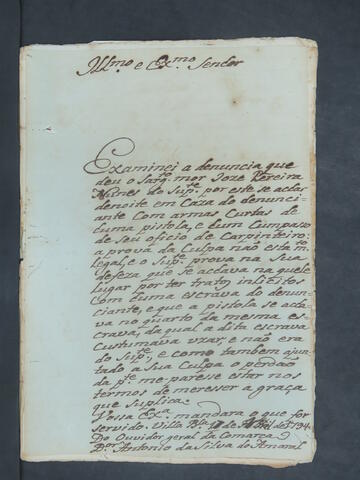 Illmo e Exmo Senhor
Examinei a denuncia que
deu o Sargto mor Joze Pereira
Nunes do Supte por este se achar
denoite em Caza do denunci-
ante Com armas Curtas de
huma pistola, e hum Compasso
de seu oficio de Carpinteiro:
a prova da Culpa não esta mto
legal, e o Supte prova na Sua
defeza que se achava naquele
lugar por ter tratos inlicitos
Com huma escrava do denun-
ciante, e que a pistola se acha
va no quarto da mesma es-
crava, da qual a dita escrava
Custumava uzar, e não era
do Supte, e como tambem ajun
tado a Sua Culpa o perdão
da pte me parese estar nos
termos de mereser a graça
que Suplica.
Vossa Exa mandara o que for
servido. Villa Ra de de 1794
Do Ouvidor geral da Comarca
Dor Antonio da Silva do Amaral